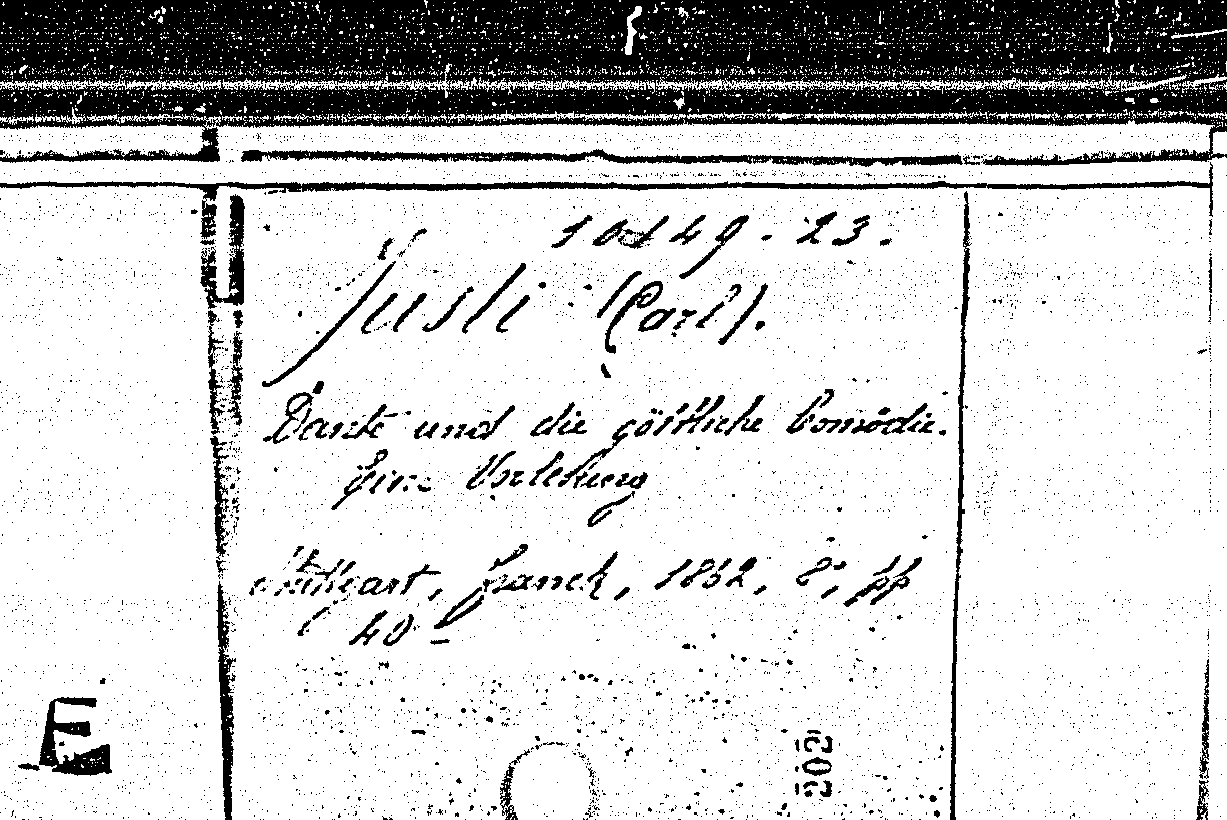 10149.23.
Justi (Carl).
Dante und die göttliche Comödie.
Eine Vorlesung
Stuttgart, Franck, 1862, 8°, pp
40-
E
202